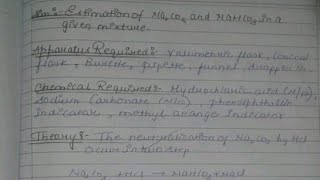 Aim:- Estimation of Na₂CO₃ and NaHCO₃ in a
given mixture.
Apparatus Required:- Volumetric flask, Conical
flask, Burette, pipette, funnel, dropper
Chemical Required:- Hydrochloric acid (N/10),
sodium carbonate (N/10), phenolphthalein
Indicator, methyl orange Indicator
Theory:- The neutralization of Na₂CO₃ by HCl
occur in two step
Na₂CO₃ + HCl → NaHCO₃ + NaCl